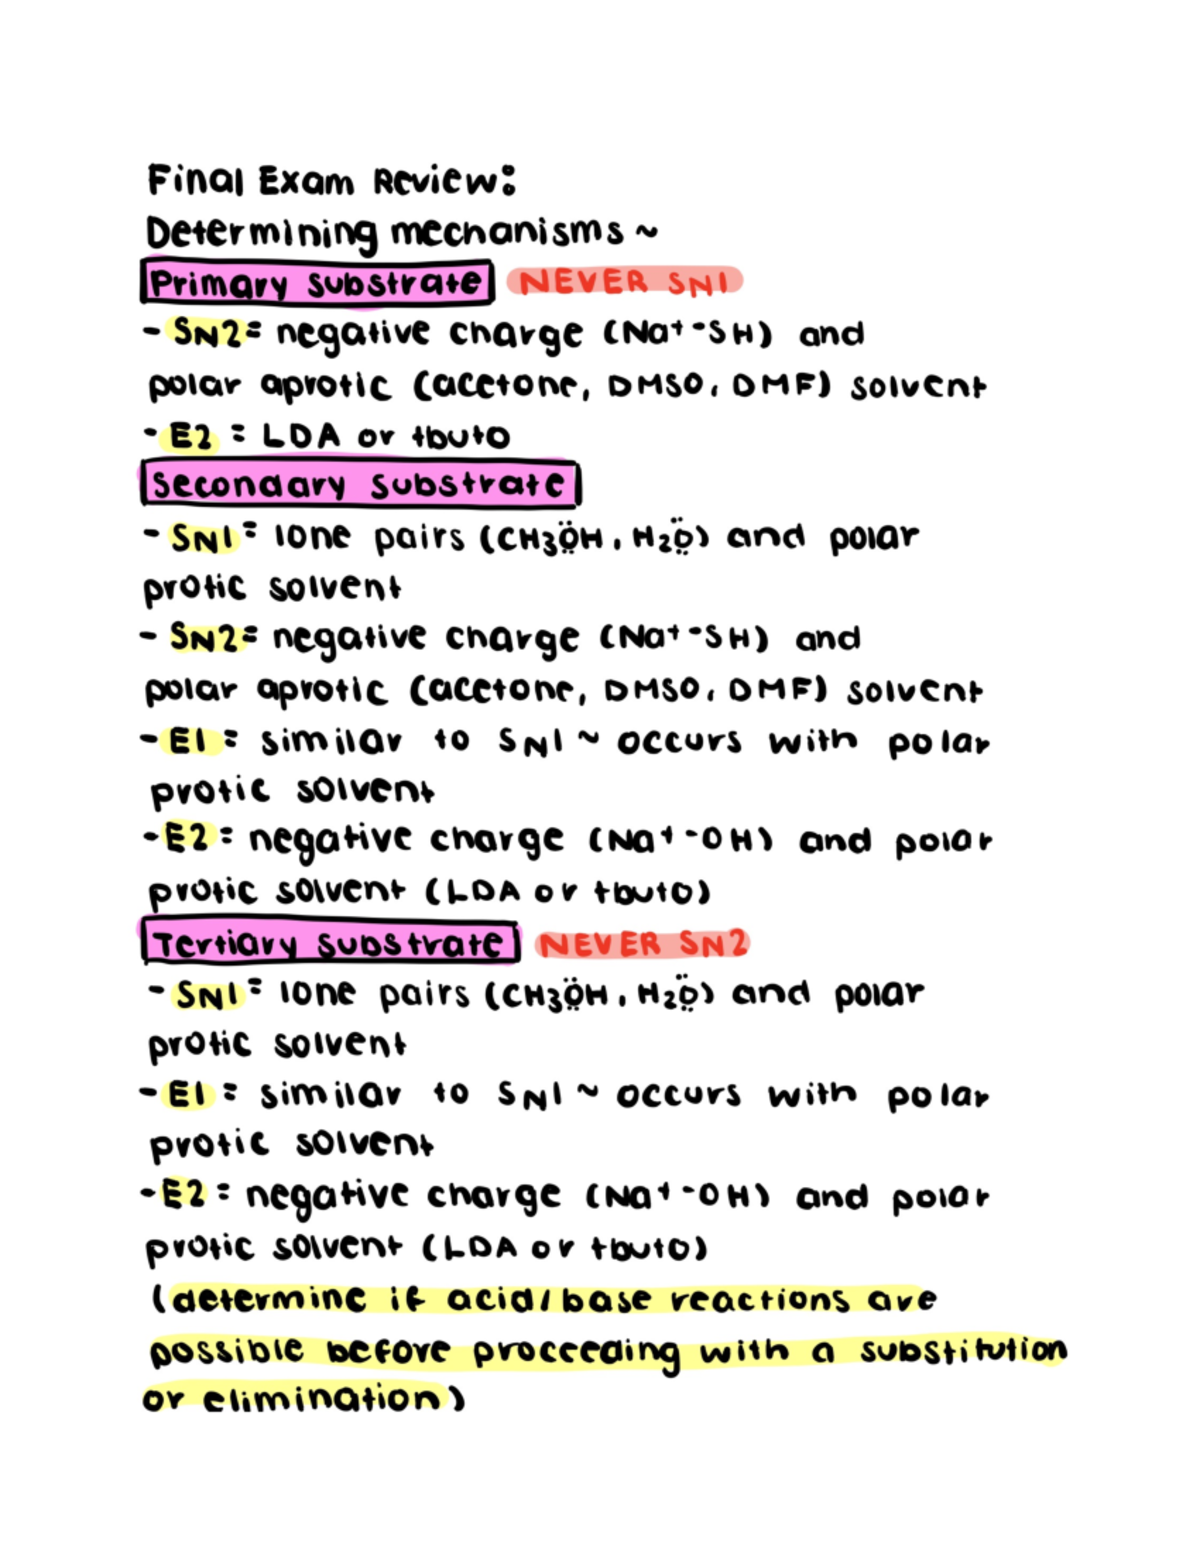 Final Exam Review:
Determining mechanisms ~
Primary substrate NEVER SN1
- SN2= negative charge (Na+ -SH) and
polar aprotic (acetone, DMSO, DMF) solvent
- E2 = LDA or tbuto
Secondary substrate
- SN1= lone pairs (CH3ÖH, H2Ö) and polar
protic solvent
- SN2= negative charge (Na+ -SH) and
polar aprotic (acetone, DMSO, DMF) solvent
- E1 = similar to SN1 ~ occurs with polar
protic solvent
- E2 = negative charge (Na+ -OH) and polar
protic solvent (LDA or tbuto)
Tertiary substrate NEVER SN2
- SN1= lone pairs (CH3ÖH, H2Ö) and polar
protic solvent
- E1 = similar to SN1 ~ occurs with polar
protic solvent
- E2 = negative charge (Na+ -OH) and polar
protic solvent (LDA or tbuto)
(determine if acid/base reactions are
possible before proceeding with a substitution
or elimination)